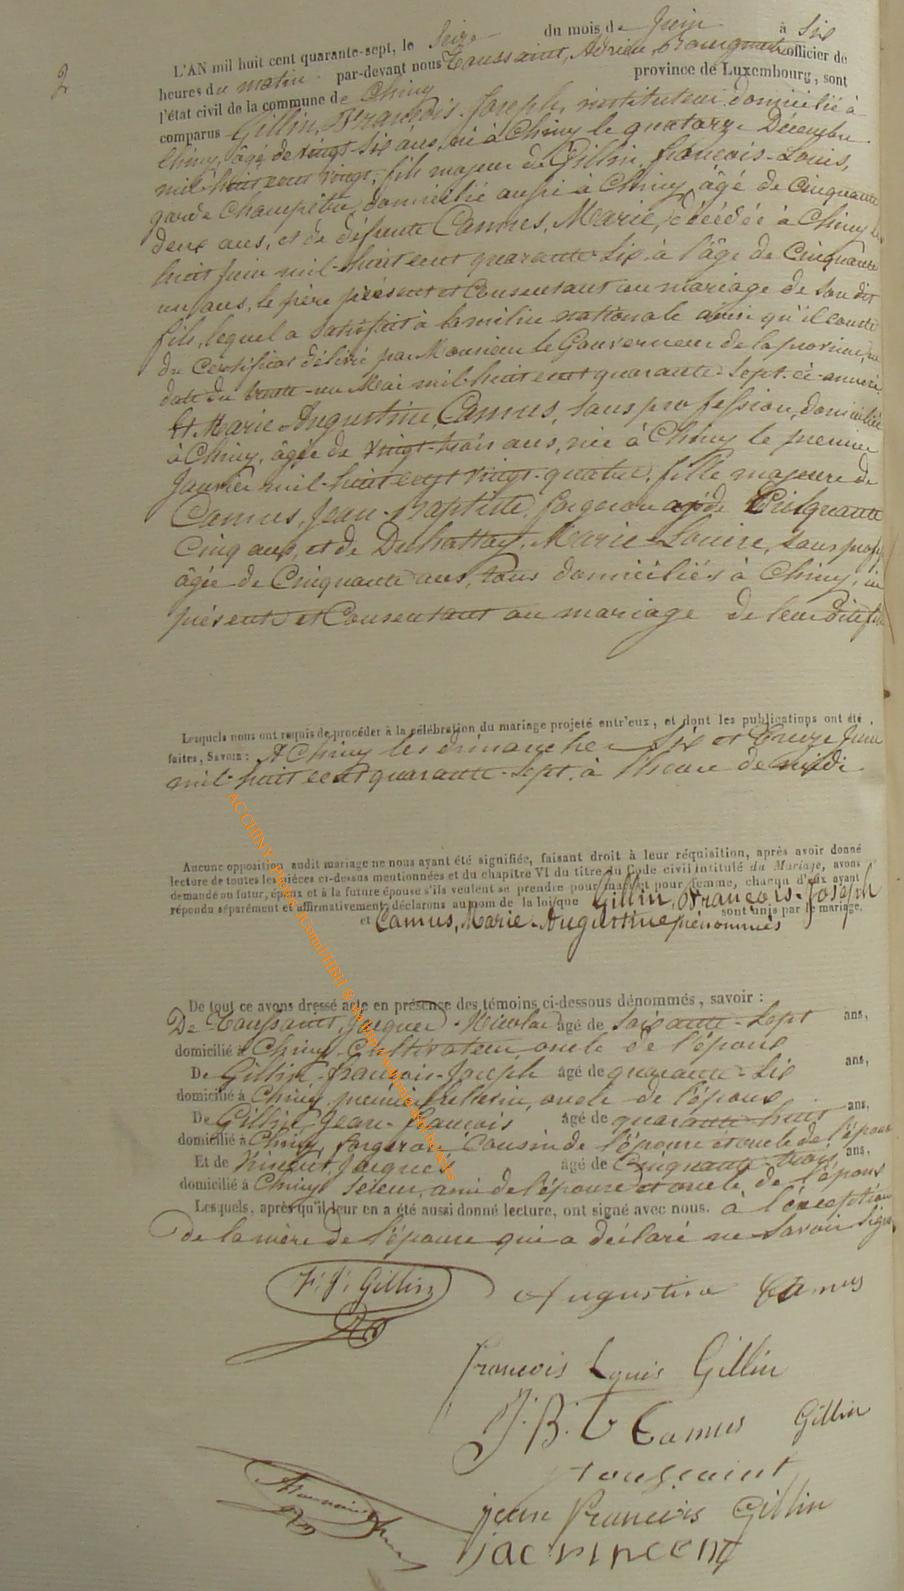 2
L'AN mil huit cent quarante-sept, le Seize du mois de Juin à Six
heures du matin par-devant nous Toussaint, Adrien, Bourgmestre officier de
l'état civil de la commune de Chiny province de Luxembourg, sont
comparus Gillin, François-Joseph, instituteur domicilié à
Chiny, âgé de vingt-six ans, né à Chiny le quatorze Décembre
mil-huit cent vingt, fils majeur de Gillin, François-Louis,
garde champêtre domicilié aussi à Chiny, âgé de Cinquante
deux ans, et de défunte Camus, Marie, décédée à Chiny le
huit Juin mil-huit cent quarante-Six, à l'âge de Cinquante
un ans, le père présent et Consentant au mariage de Son dit
fils, lequel a satisfait à la milice nationale ainsi qu'il conste
du Certificat délivré par Monsieur le Gouverneur de la province, en
date du trente-un Mai mil-huit cent quarante-sept ci-annexé
Et Marie-Augustine Camus, Sans profession, domiciliée
à Chiny, âgée de vingt-trois ans, née à Chiny le premier
Janvier mil-huit cent vingt-quatre, fille majeure de
Camus, Jean-Baptiste, forgeron âgé de Cinquante
Cinq ans, et de Marie-Louise, Sans prof
âgée de Cinquante ans, tous domiciliés à Chiny, ici
présents et Consentant au mariage de leur dite fille
Lesquels nous ont requis de procéder à la célébration du mariage projeté entr'eux, et dont les publications ont été
faites, Savoir : A Chiny les dimanches Six et Treize Juin
mil-huit cent quarante-Sept, à l'heure de midi
Aucune opposition audit mariage ne nous ayant été signifiée, faisant droit à leur réquisition, après avoir donné
lecture de toutes les pièces ci-dessus mentionnées et du chapitre VI du titre du Code civil intitulé du Mariage, avons
demandé au futur époux et à la future épouse s'ils veulent se prendre pour mari et pour femme, chacun d'eux ayant
répondu séparément et affirmativement, déclarons au nom de la loi que Gillin, François-Joseph
et Camus, Marie-Augustine prénommés sont unis par le mariage.
De tout ce avons dressé acte en présence des témoins ci-dessous dénommés, savoir :
De Toussaint, Jacques-Nicolas âgé de Soixante-Sept ans,
domicilié à Chiny Cultivateur oncle de l'époux
De Gillin, François-Joseph âgé de quarante-six ans,
domicilié à Chiny, oncle de l'époux
De Gillin, Jean-François âgé de quarante-huit ans,
domicilié à Chiny, forgeron Cousin de l'épouse et oncle de l'époux
Et de Vincent, Jacques âgé de Cinquante-trois ans,
domicilié à Chiny, ami de l'épouse et oncle de l'époux
Lesquels, après qu'il leur en a été aussi donné lecture, ont signé avec nous. à l'exception
De la mère de l'épouse qui a déclaré ne Savoir Signer
F. J. Gillin Augustine Camus
François Louis Gillin
J. B. Camus Gillin
toussaint
jean François Gillin
jac vincent
ACCHINY